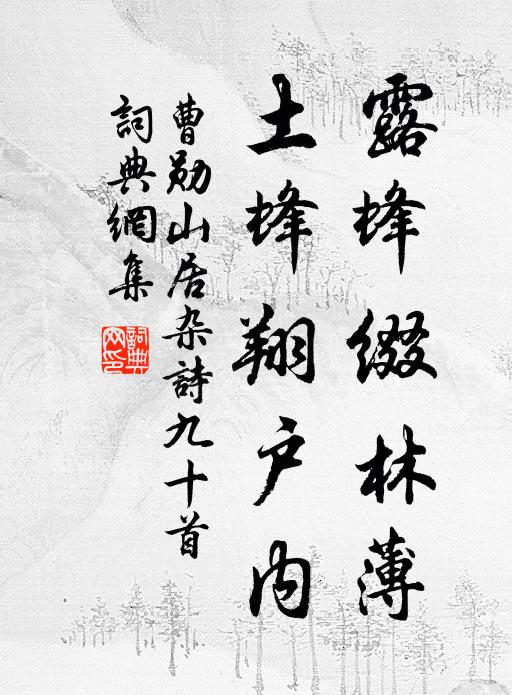 露蜂缀林薄
土蜂翔户内
曹勋山居杂詩九十首
詞典網集
詞典
网印